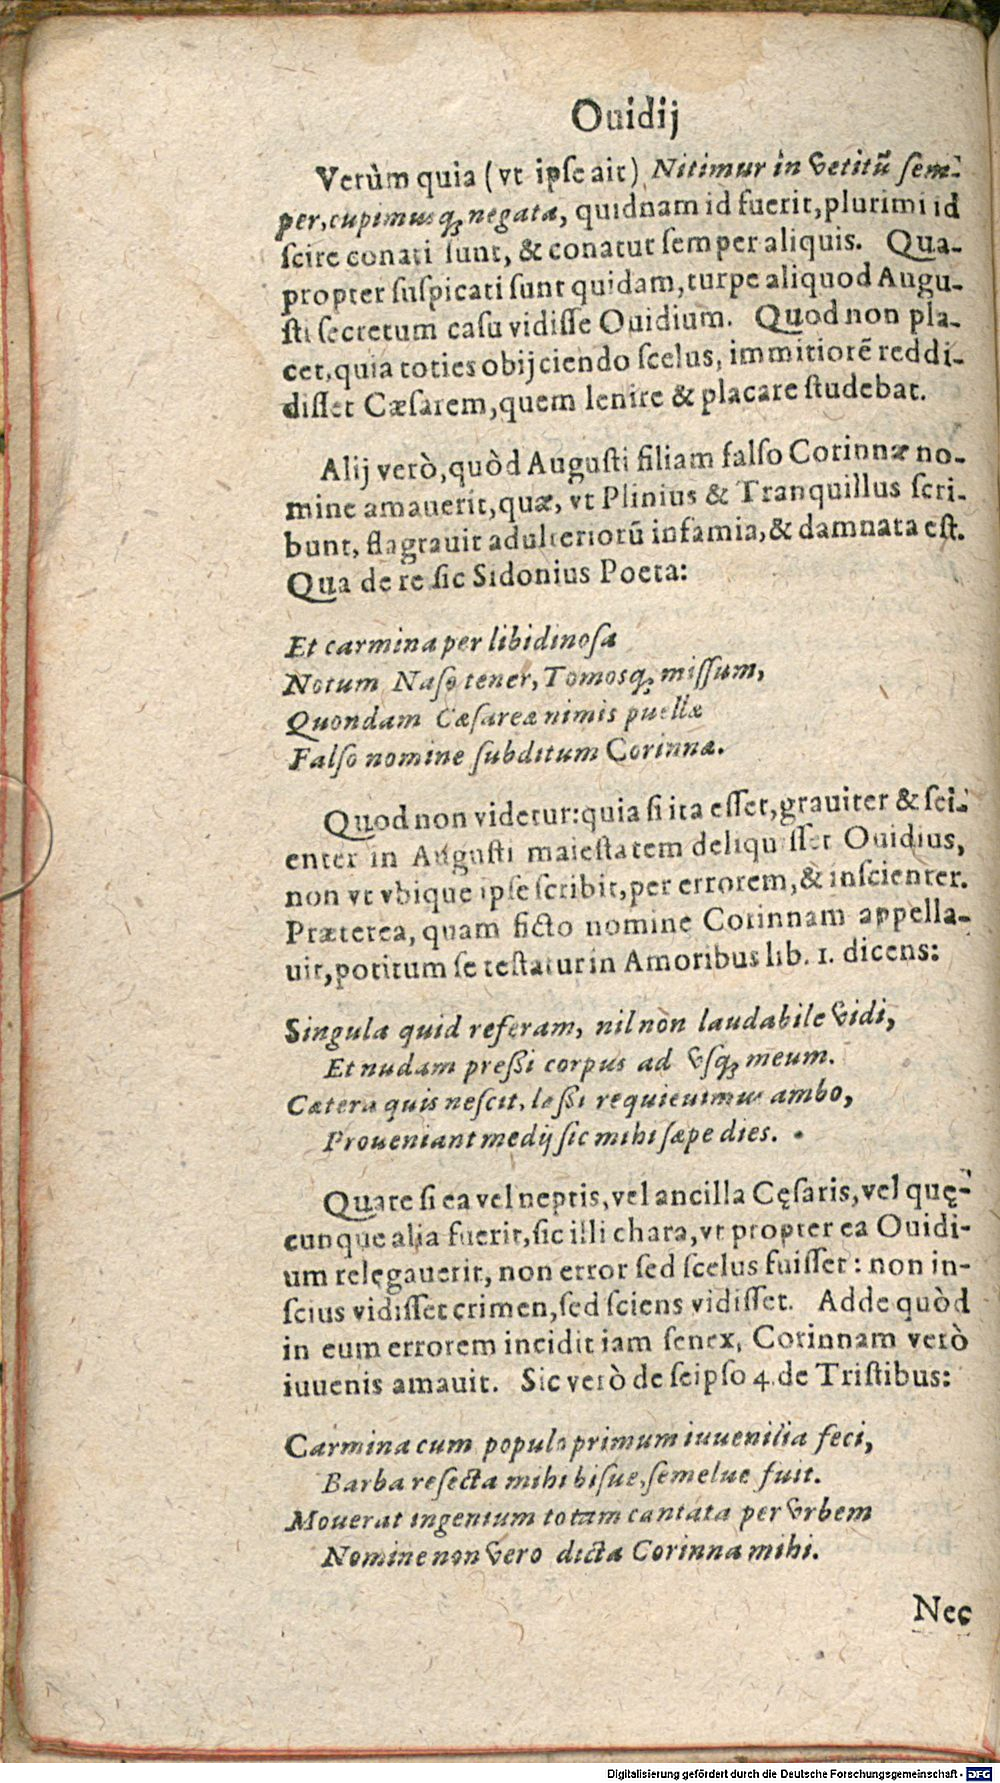 Ouidij
Verùm quia (vt ipſe ait) Nitimur in vetitũ ſem-
per, cupimusq; negata, quidnam id fuerit, plurimi id
ſcire conati ſunt, & conatut ſemper aliquis. Qua-
propter ſuſpicati ſunt quidam, turpe aliquod Augu-
ſti ſecretum caſu vidiſſe Ouidium. Quod non pla-
cet, quia toties obijciendo ſcelus, immitiorẽ reddi-
diſſet Cæſarem, quem lenire & placare ſtudebat.
Alij verò, quòd Auguſti filiam falſo Corinnæ no-
mine amauerit, quæ, vt Plinius & Tranquillus ſcri-
bunt, flagrauit adulteriorũ infamia, & damnata eſt.
Qua de re ſic Sidonius Poeta:
Et carmina per libidinoſa
Notum Naſo tener, Tomosq; miſſum,
Quondam Cæſareæ nimis puellæ
Falſo nomine ſubditum Corinnæ.
Quod non videtur: quia ſi ita eſſet, grauiter & ſci-
enter in Auguſti maieſtatem deliquiſſet Ouidius,
non vt vbique ipſe ſcribit, per errorem, & inſcienter.
Præterea, quam ficto nomine Corinnam appella-
uit, potitum ſe teſtatur in Amoribus lib. 1. dicens:
Singula quid referam, nil non laudabile vidi,
Et nudam preßi corpus ad vſq; meum.
Cætera quis neſcit, laßi requieuimus ambo,
Proueniant medij ſic mihi ſæpe dies.
Quare ſi ea vel neptis, vel ancilla Cęſaris, vel quę-
cunque alia fuerit, ſic illi chara, vt propter ea Ouidi-
um relęgauerit, non error ſed ſcelus fuiſſet: non in-
ſcius vidiſſet crimen, ſed ſciens vidiſſet. Adde quòd
in eum errorem incidit iam ſenex, Corinnam verò
iuuenis amauit. Sic verò de ſeipſo 4. de Triſtibus:
Carmina cum populo primum iuuenilia feci,
Barba reſecta mihi biſue, ſemelue fuit.
Mouerat ingenium totam cantata per vrbem
Nomine non vero dicta Corinna mihi.
Nec
Digitalisierung gefördert durch die Deutsche Forschungsgemeinschaft - DFG